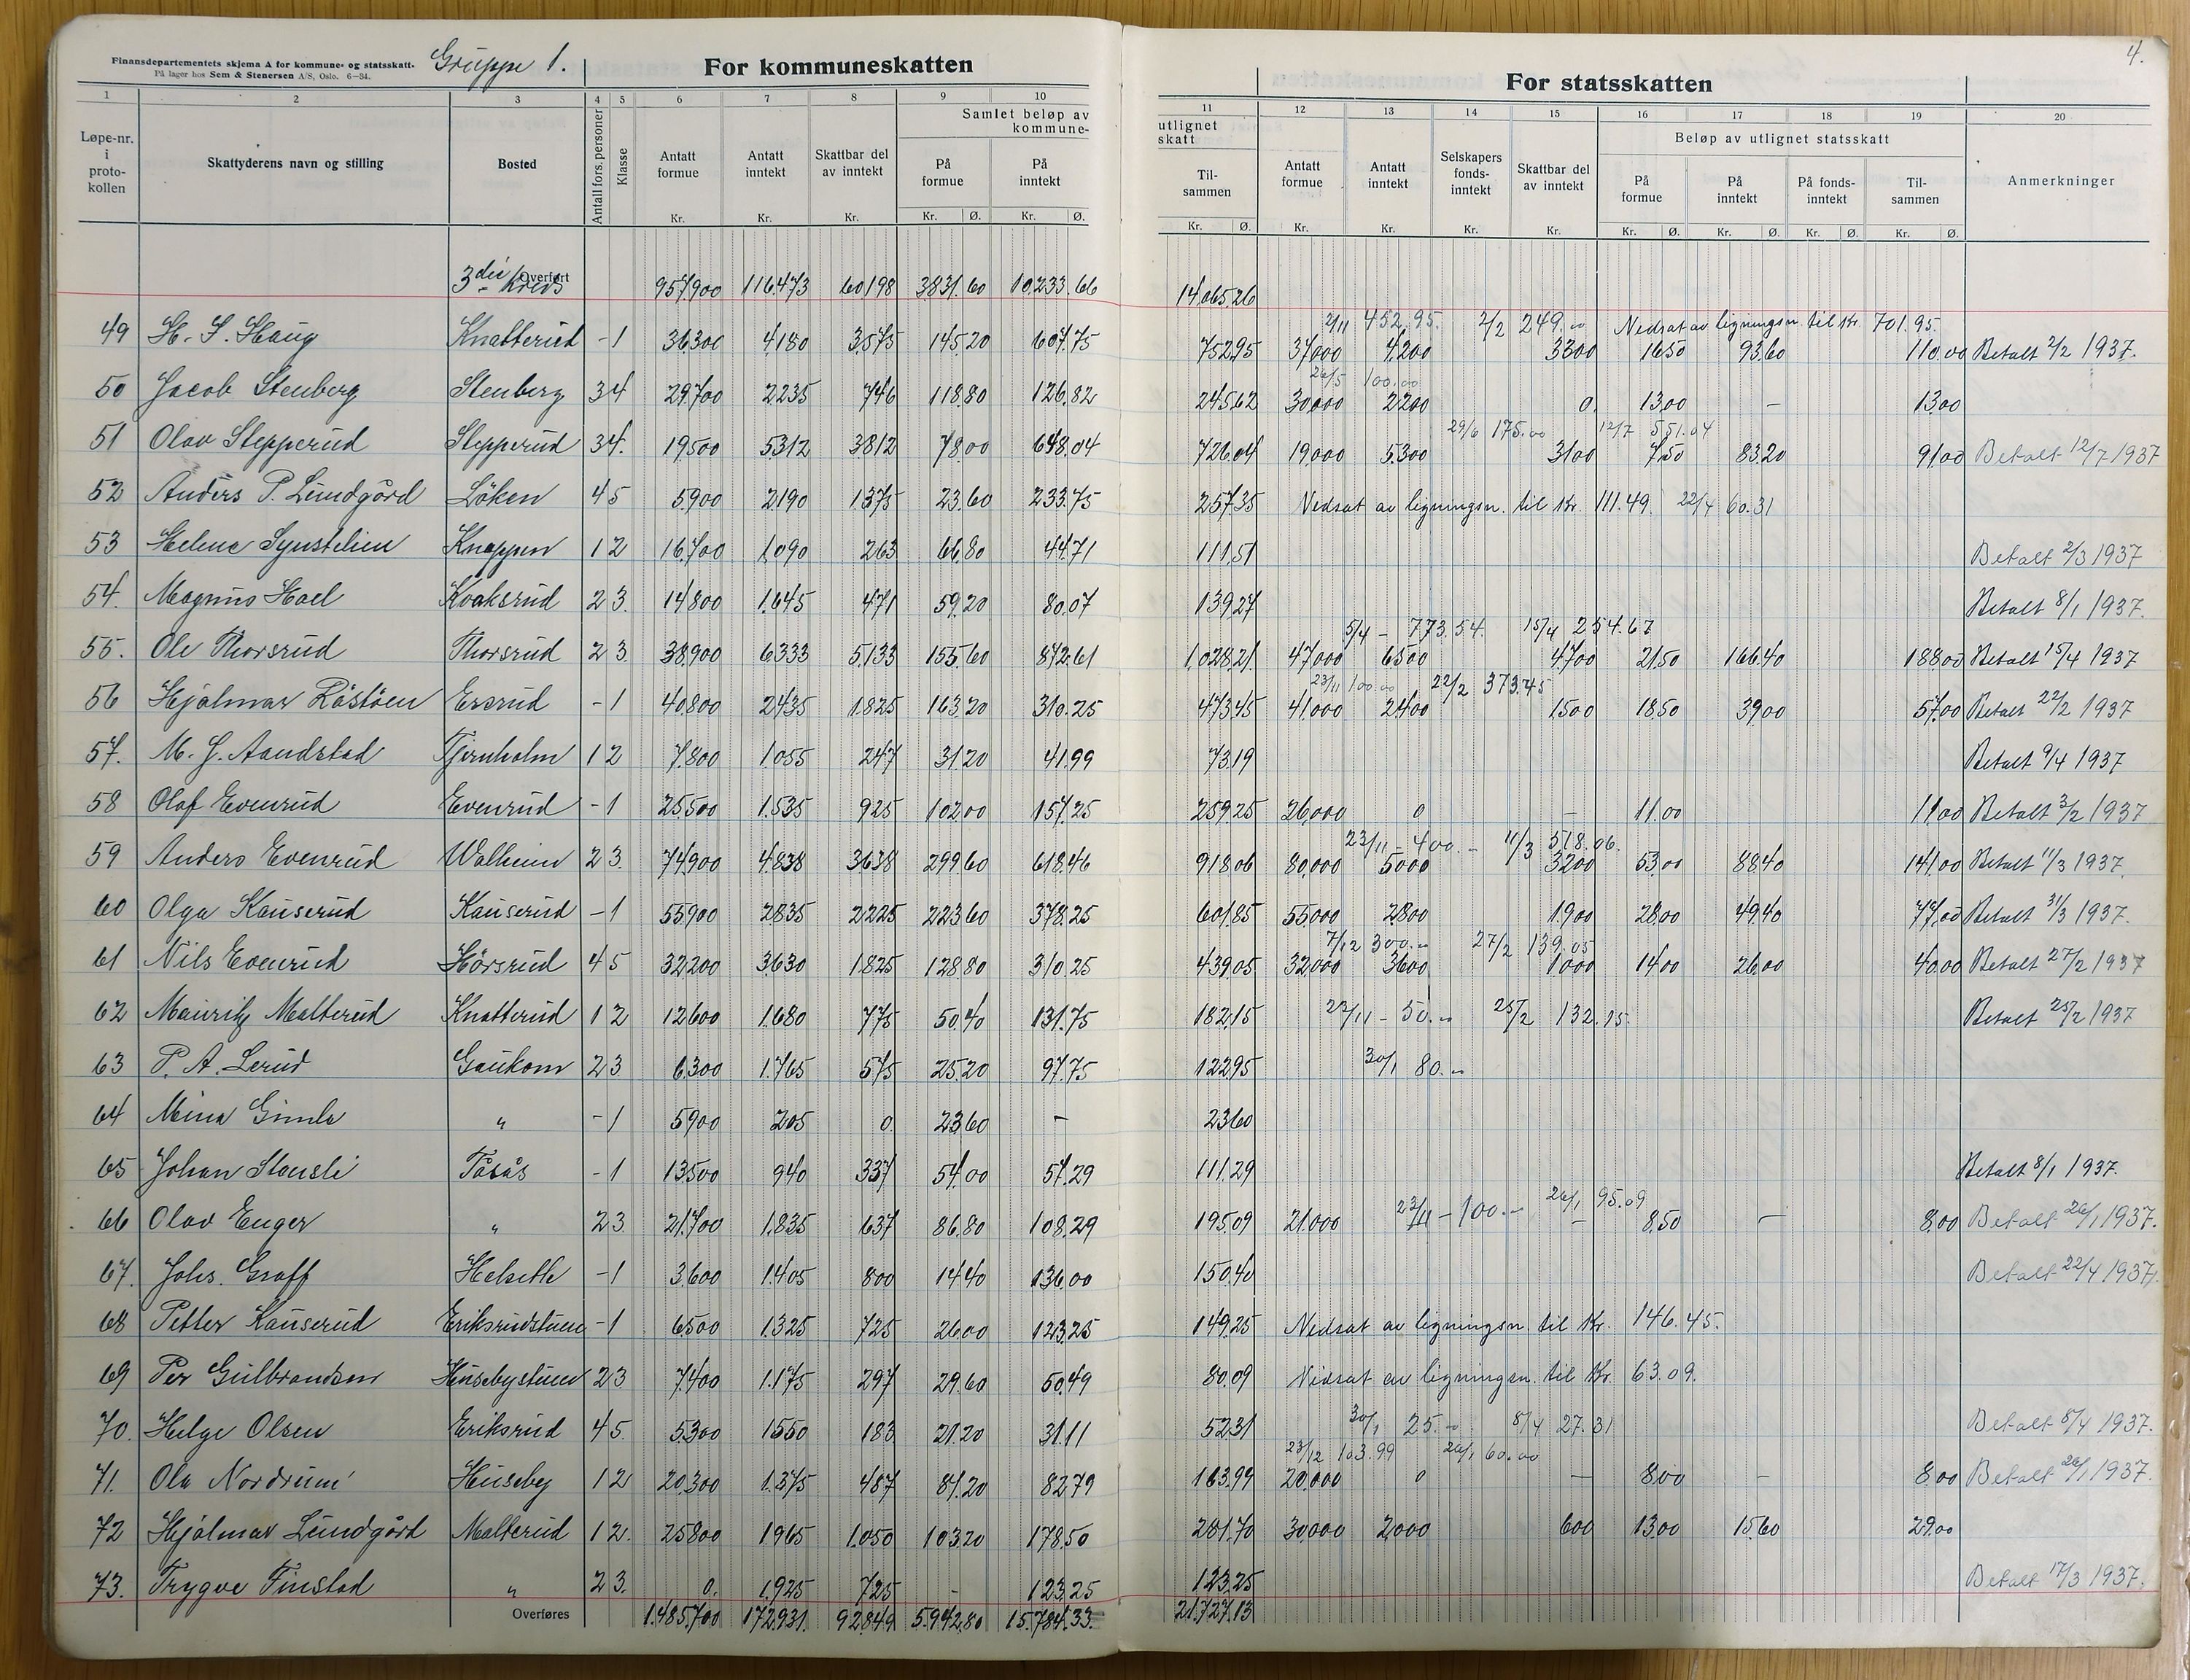 Finansdepartementets skjema A for kommune- og statsskatt. Gruppe 1.
På lager hos Sem & Stenersen A/S, Oslo. 6—34.
For kommuneskatten
For statsskatten
4.
1 2 3 4 5 6 7 8 9 10 11 12 13 14 15 16 17 18 19 20
Løpe-nr. i proto-kollen
Skattyderens navn og stilling
Bosted
Antall fors. personer
Klasse
Antatt formue Kr.
Antatt inntekt Kr.
Skattbar del av inntekt Kr.
Samlet beløp av kommune-
På formue Kr. Ø.
På inntekt Kr. Ø.
utlignet skatt
Til-sammen Kr. Ø.
Antatt formue Kr.
Antatt inntekt Kr.
Selskapers fonds-inntekt Kr.
Skattbar del av inntekt Kr.
Beløp av utlignet statsskatt
På formue Kr. Ø.
På inntekt Kr. Ø.
På fonds-inntekt Kr. Ø.
Til-sammen Kr. Ø.
Anmerkninger
3die Kreds Overført 957900 116473 60198 3831.60 10.233.66 14.065.26
2/11 452.95. 2/2 249.- Nedsat av ligningsn. til Kr. 701.95.
49 H. S. Haug Knatterud - 1 36300 4180 3.575 145.20 607.75 752.95 37000 4.200 3300 16.50 93.60 110.00 Betalt 2/2 1937.
26/5 100.00
50 Jacob Stenberg Stenberg 3 4 29.700 2235 746 118.80 126.82 245.62 30.000 2200 0 13.00 — 13.00
29/6 175.00 12/7 551.04
51 Olav Stepperud Stepperud 3 4. 19500 5312 3812 78.00 648.04 726.04 19.000 5.300 3100 7.50 83.20 91.00 Betalt 12/7 1937
52 Anders P. Lundgård Löken 4 5 5900 2.190 1.375 23.60 233.75 257.35 Nedsat av ligningsn. til Kr. 111.49. 22/4 60.31
53 Helene Synstelien Knappen 1 2 16.700 1.090 263 66.80 44.71 111.51 Betalt 2/3 1937
54. Magnus Hoel Kvaksrud 2 3. 14800 1.645 471 59.20 80.07 139.27 Betalt 8/1 1937.
5/4 - 773.54. 15/4 254.67
55. Ole Thorsrud Thorsrud 2 3. 38.900 6333 5.133 155.60 872.61 1.028.21 47000 6500 4700 21.50 166.40 188.00 Betalt 15/4 1937
23/11 100.00 22/2 373.45
56 Hjalmar Röstöen Ersrud - 1 40.800 2435 1.825 163.20 310.25 473.45 41.000 2400 1.500 18.50 39.00 57.00 Betalt 22/2 1937
57. M. G. Aandstad Tjernholm 1 2 7.800 1.055 247 31.20 41.99 73.19 Betalt 9/4 1937
58 Olaf Evenrud Evenrud - 1 25500 1.535 925 102.00 157.25 259.25 26.000 0 — 11.00 11.00 Betalt 3/2 1937
23/11 - 400.- 11/3 518.06.
59 Anders Evenrud Walheim 2 3. 74.900 4.838 3638 299.60 618.46 918.06 80.000 5000 3200 53.00 88.40 141.00 Betalt 11/3 1937.
60 Olga Kauserud Kauserud - 1 55.900 2.835 2.225 223.60 378.25 601.85 55.000 2.800 1.900 28.00 49.40 77.00 Betalt 31/3 1937.
7/12 300.- 27/2 139.05
61 Nils Evenrud Hörsrud 4 5 32200 3.630 1.825 128.80 310.25 439.05 32.000 3600 1.000 14.00 26.00 40.00 Betalt 27/2 1937
62 Mauritz Malterud Knatterud 1 2 12600 1.680 775 50.40 131.75 182.15 23/11 - 50.- 25/2 132.15. Betalt 25/2 1937
63 P. A. Lerud Gaukom 2 3 6.300 1.765 575 25.20 97.75 122.95 30/1 80.-
64 Mina Gimle " - 1 5900 205 0 23.60 — 23.60
65 Johan Stensli Tåsås - 1 13500 940 337 54.00 57.29 111.29 Betalt 8/1 1937.
23/11 - 100.- 26/1 95.09
66 Olav Enger " 2 3. 21.700 1.835 637 86.80 108.29 195.09 21.000 — 8.50 — 8.00 Betalt 26/1 1937.
67. Johs. Graff Helsethe - 1 3.600 1.405 800 14.40 136.00 150.40 Betalt 22/4 1937.
68 Petter Kauserud Eriksrudstuen - 1 6500 1.325 725 26.00 123.25 149.25 Nedsat av ligningsn. til Kr. 146.45.
69 Per Gulbrandsen Husebystuen 2 3 7.400 1.175 297 29.60 50.49 80.09 Nedsat av ligningsn. til Kr. 63.09.
70. Helge Olsen Eriksrud 4 5. 5.300 1550 183 21.20 31.11 52.31 30/1 25.- 8/4 27.31 Betalt 8/4 1937.
23/12 103.99 26/1 60.00
71. Ole Nordrum Huseby 1 2 20.300 1.375 487 81.20 82.79 163.99 20.000 0 — 8.00 — 8.00 Betalt 26/1 1937.
72 Hjalmar Lundgård Malterud 1 2. 25800 1.965 1.050 103.20 178.50 281.70 30.000 2.000 600 13.00 15.60 29.00
73. Trygve Finstad " 2 3. 0. 1.925 725 - 123.25 123.25 Betalt 17/3 1937.
Overføres 1.485.700 172.931. 92.849 5.942.80 15.784.33. 21.727.13